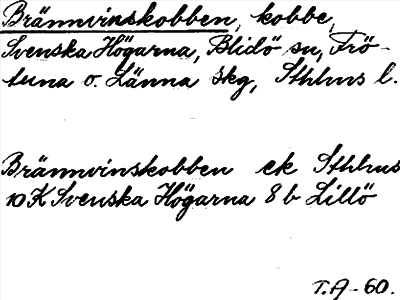 Brännvinskobben, kobbe,
Svenska Högarna, Blidö sn, Frö-
tuna o. Länna skg, Sthlms l.
Brännvinskobben ek Sthlms
10K Svenska Högarna 8 b Lillö
T.A-60.